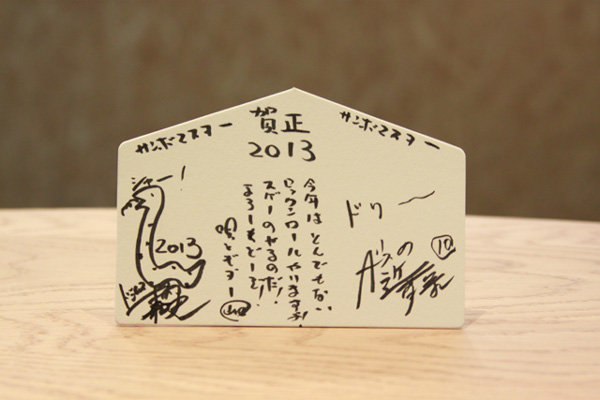 サンボマスター
賀正
2013
サンボマスター
シャー!
2013
ドラムス
今年はとんでもない
ロックンロールやりますぜ!
スゲーのやるのだ!
よろしくどーぞ!
唄とギター
山口
ドリー
ベースの
近藤
10